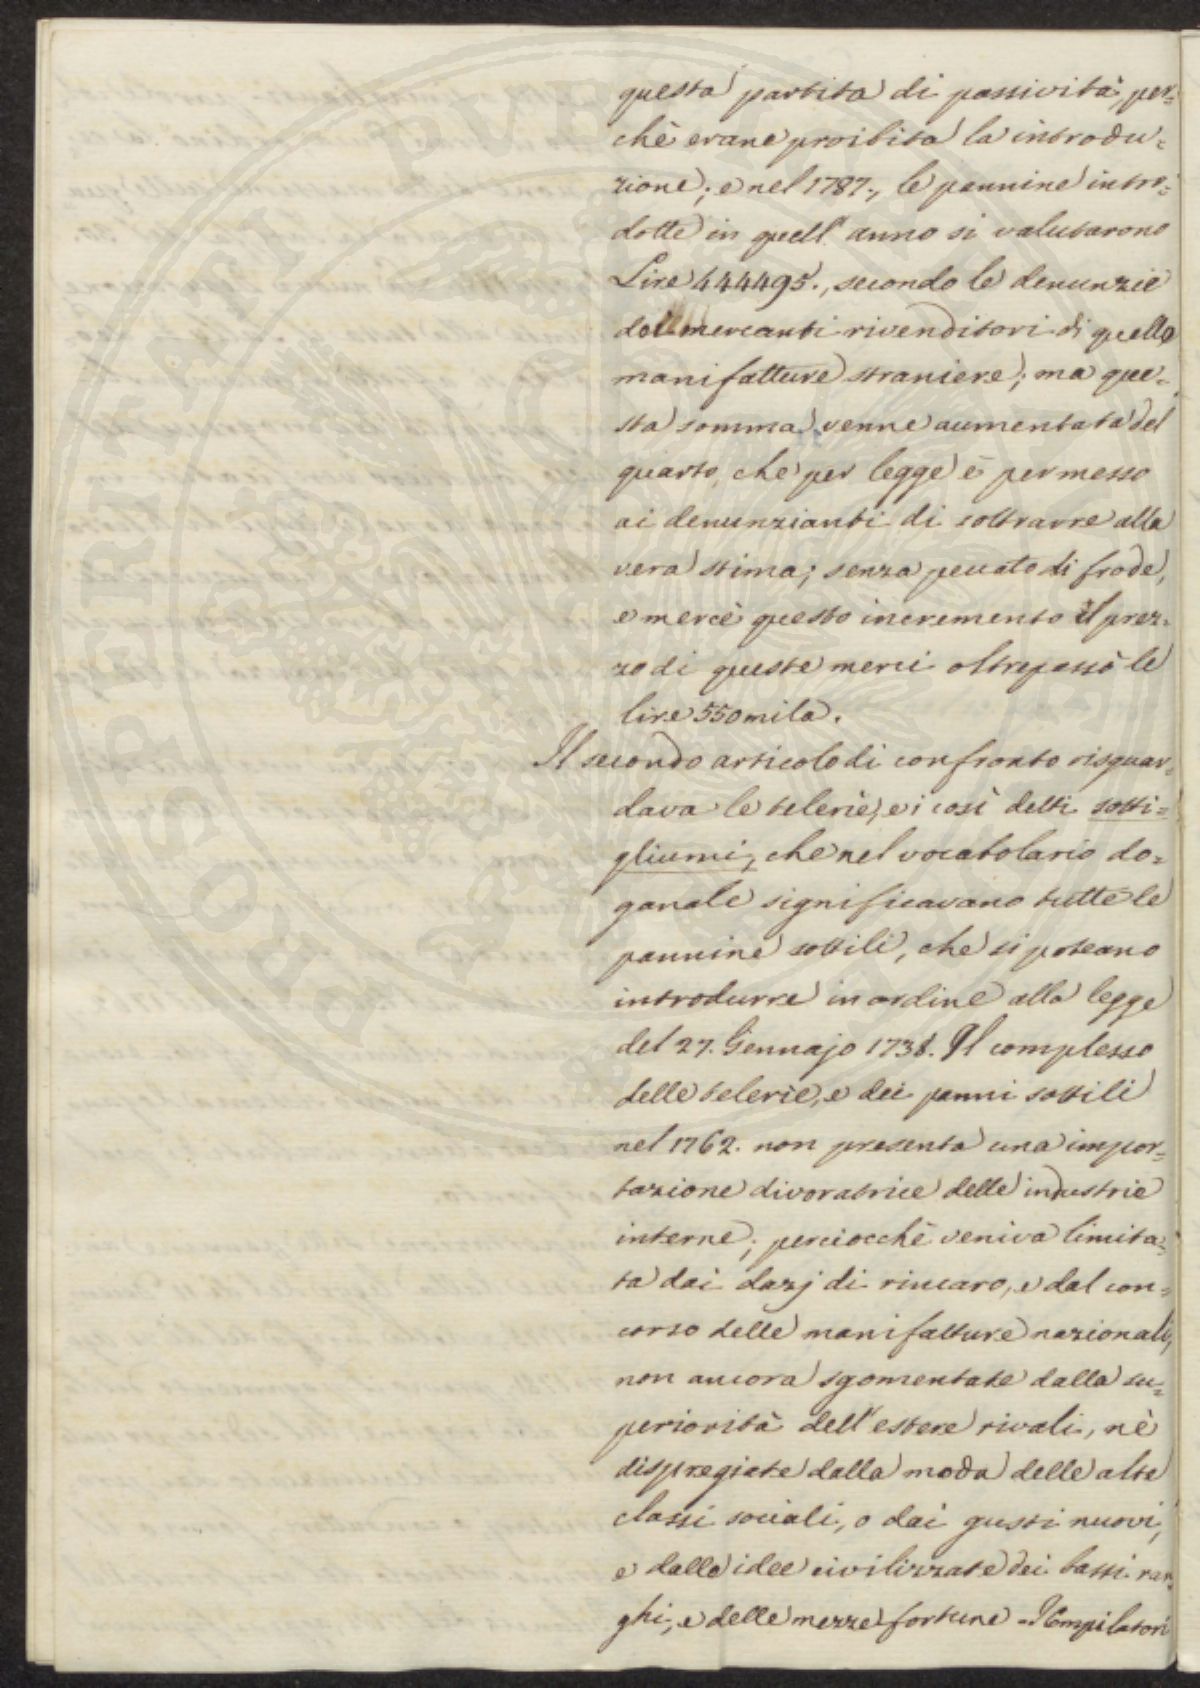 questa partita di passività, per=
chè erane proibita la introdu=
zione; e nel 1787., le pannine intro=
dotte in quell' anno si valutarono
Lire 444495., secondo le denunzie
dei mercanti rivenditori di quelle
manifatture straniere; ma que=
sta somma venne aumentata del
quarto, che per legge è permesso
ai denunzianti di sottrarre alla
vera stima; senza peccato di frode,
e mercè questo incremento il prez=
zo di queste merci oltrepassò le
lire 550 mila.
Il secondo articolo di confronto risguar=
dava le telerie, e i così detti sotti=
gliumi, che nel vocabolario do=
ganale significavano tutte le
pannine sottili, che si poteano
introdurre in ordine alla legge
del 27. Gennajo 1738. Il complesso
delle telerie, e dei panni sottili
nel 1762. non presenta una impor=
tazione divoratrice delle industrie
interne; perciocchè veniva limita=
ta dai dazj di rincaro, e dal con=
corso delle manifatture nazionali,
non ancora sgomentate dalla su=
periorità dell' estere rivali, nè
dispregiate dalla moda delle alte
classi sociali, o dai gusti nuovi,
e dalle idee civilizzate dei bassi ran=
ghi, e delle mezze fortune = I Compilatori